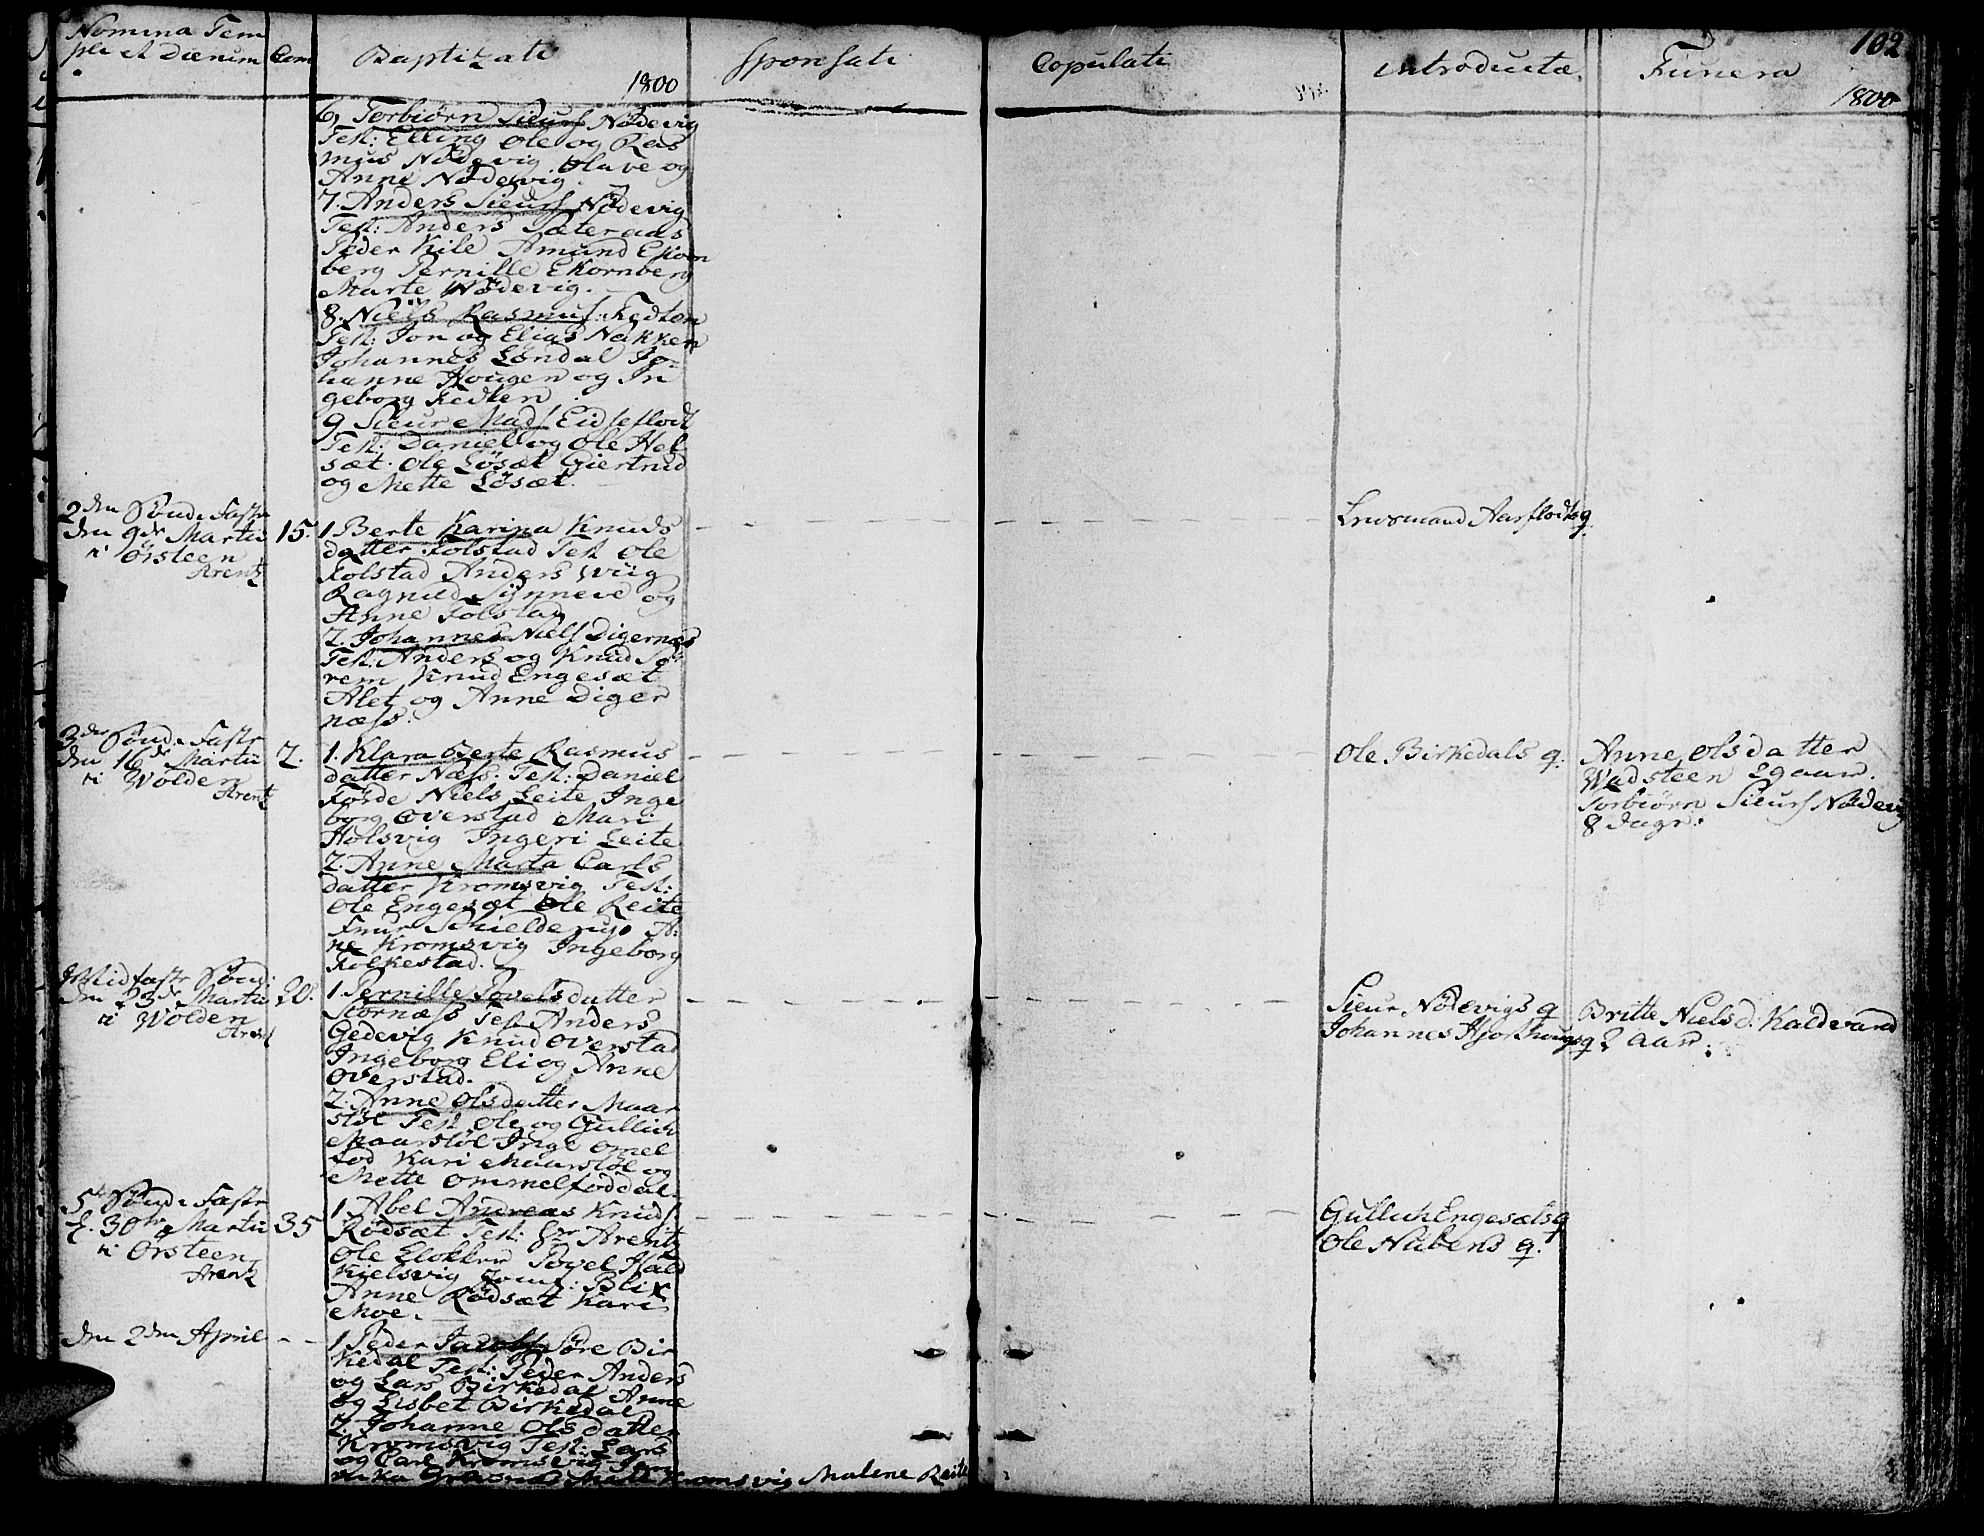 Nomina Tem
pli et Dierum
Com
Baptizati
1800
Sponsati
Copulati
introductæ.
Funera
102
1800
6, Torbiörn Sieurs Nödevig
Test: Elling Ole og Ras
mus Nödevig Olave og
Anne Nödevig.
7. Anders Sieurs Nödevig
Test: Anders Sæteraas
Peder Kile Amund Ekorn
berg Pernille Ekornberg
Marte Nödevig.
8. Niels Rasmus: Fedten
Test: Jon og Elias Nakken
Johannes Löndal Jo-
hanne Hougen og In
geborg Fedten
9 Sieur Mads Eidseflodt
Test: Daniel og Ole Hel
sæt. Ole Lösæt Giertrud
og Mette Lösæt.
2den Sönd. i Faste
den 9de Martii
i Örsteen
Arentz
15.
1 Berte Karina Knuds
datter Folstad Test Ole
Folstad Anders Wiig
Ragnild Sünneve og
Anne Folstad
2. Johannes Niels Digernæs
Test: Anders og Knud So
rem Knud Engesæt
Alet og Anne Diger
næss.
Aarflodts q.
3die Sönd. i Faste
den 16de Martii
i Wolden
Arentz
7.
1. Klara Berte Rasmus
datter Næss. Test: Daniel
Förde Niels Leite Inge
borg Overstad Mari
Holsvig Ingeri Leite
2. Anne Marta Carls
datter Kromsvig Test:
Ole Engesæt Ole Reite
Schielderup A:
ne Kromsvig Ingeborg
Folkestad.
Ole Birkedals q.
Anne Olsdatter
Wadsteen 29 aar.
Torbiörn Sieurs Nödevig
8 dage.
Midfaste Sönd:
den 23de Martii
i Wolden
Arentz
20.
1 Pernille Povelsdatter
Störnæss Test Anders
Gedevig Knud Overstad
Ingeborg Eli og Anne
Overstad.
2. Anne Olsdatter Maar
stöl Test. Ole og Gullich
Maarstöl Inge Omel
fod Kari Maarstöl og
Mette Ommelfoddal
Sieur Nödevigs q
Johannes Hjorthougs q
Britte Niels d: Kaldevand
2 aar.
5te Sönd. i Faste
d. 30te Martii
i Örsteen
Arentz
35
1. Abel Andreas Knuds
Rödsæt Test: Hr Arentz
Ole Elokken Povel Hald
Kielsvig Jomf: Blix
Anne Rödsæt Kari
Moe.
Gullich Engesæts q
Ole Nübens q.
den 2den April
1 Peder Jacobs Söre Bir
kedal Test: Peder Anders
og Lars Birkedal Anne
og Lisbet Birkedal
2. Johanne Olsdatter
Kromsvig Test: Lars
og Carl Kromsvig
Kromsvig Malene Reite